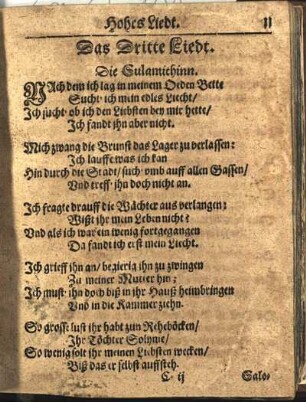 Hohes Liedt. 11
Das Dritte Liedt.
Die Sulamithinn.
NAch dem ich lag in meinem Oeden Bette
Sucht ich mein edles Liecht/
Ich sucht ob ich den Liebsten bey mir hette/
Ich fandt jhn aber nicht.
Mich zwang die Brunst das Lager zu verlassen:
Ich lauffe was ich kan
Hin durch die Stadt/ such vmb auff allen Gassen/
Vnd treff jhn doch nicht an.
Ich fragte drauff die Wächter aus verlangen;
Wißt jhr mein Leben nicht?
Vnd als ich war ein wenig fortgegangen
Da fandt ich erst mein Liecht.
Ich grieff jhn an/ begierig jhn zu zwingen
Zu meiner Mutter hin;
Ich must jhn doch biß in jhr Hauß heimbringen
Vnd in die Kammer ziehn.
So grosse lust jhr habt zun Reheböcken/
Jhr Töchter Solyme/
So wenig solt jhr meinen Liebsten wecken/
Biß das er selbst auffsteh.
C ij Salo-